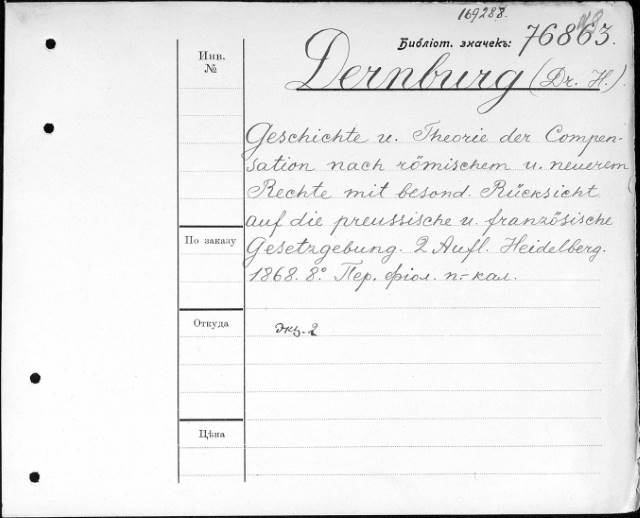 169288.
Библіот. значекъ: 76863.
Инв.
№
Dernburg (Dr. H.).
Geschichte u. Theorie der Compen-
sation nach römischem u. neuerem
Rechte mit besond. Rücksicht
auf die preussische u. französische
По заказу
Gesetzgebung. 2 Aufl. Heidelberg.
1868. 8° Пер. фіол. п.-кал.
Откуда
экз. 2
Цѣна